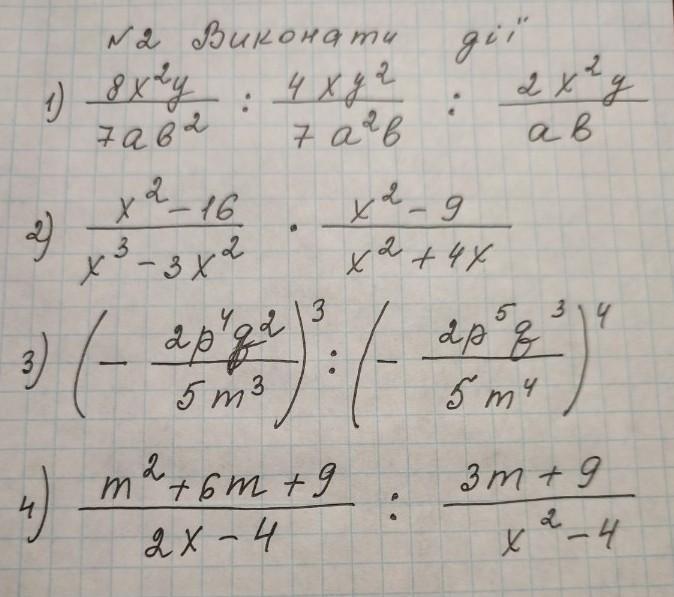 №2 Виконати дії
1) \frac{8x^2y}{7ab^2} : \frac{4xy^2}{7a^2b} : \frac{2x^2y}{ab}
2) \frac{x^2-16}{x^3-3x^2} \cdot \frac{x^2-9}{x^2+4x}
3) \left(-\frac{2p^4q^2}{5m^3}\right)^3 : \left(-\frac{2p^5q^3}{5m^4}\right)^4
4) \frac{m^2+6m+9}{2x-4} : \frac{3m+9}{x^2-4}